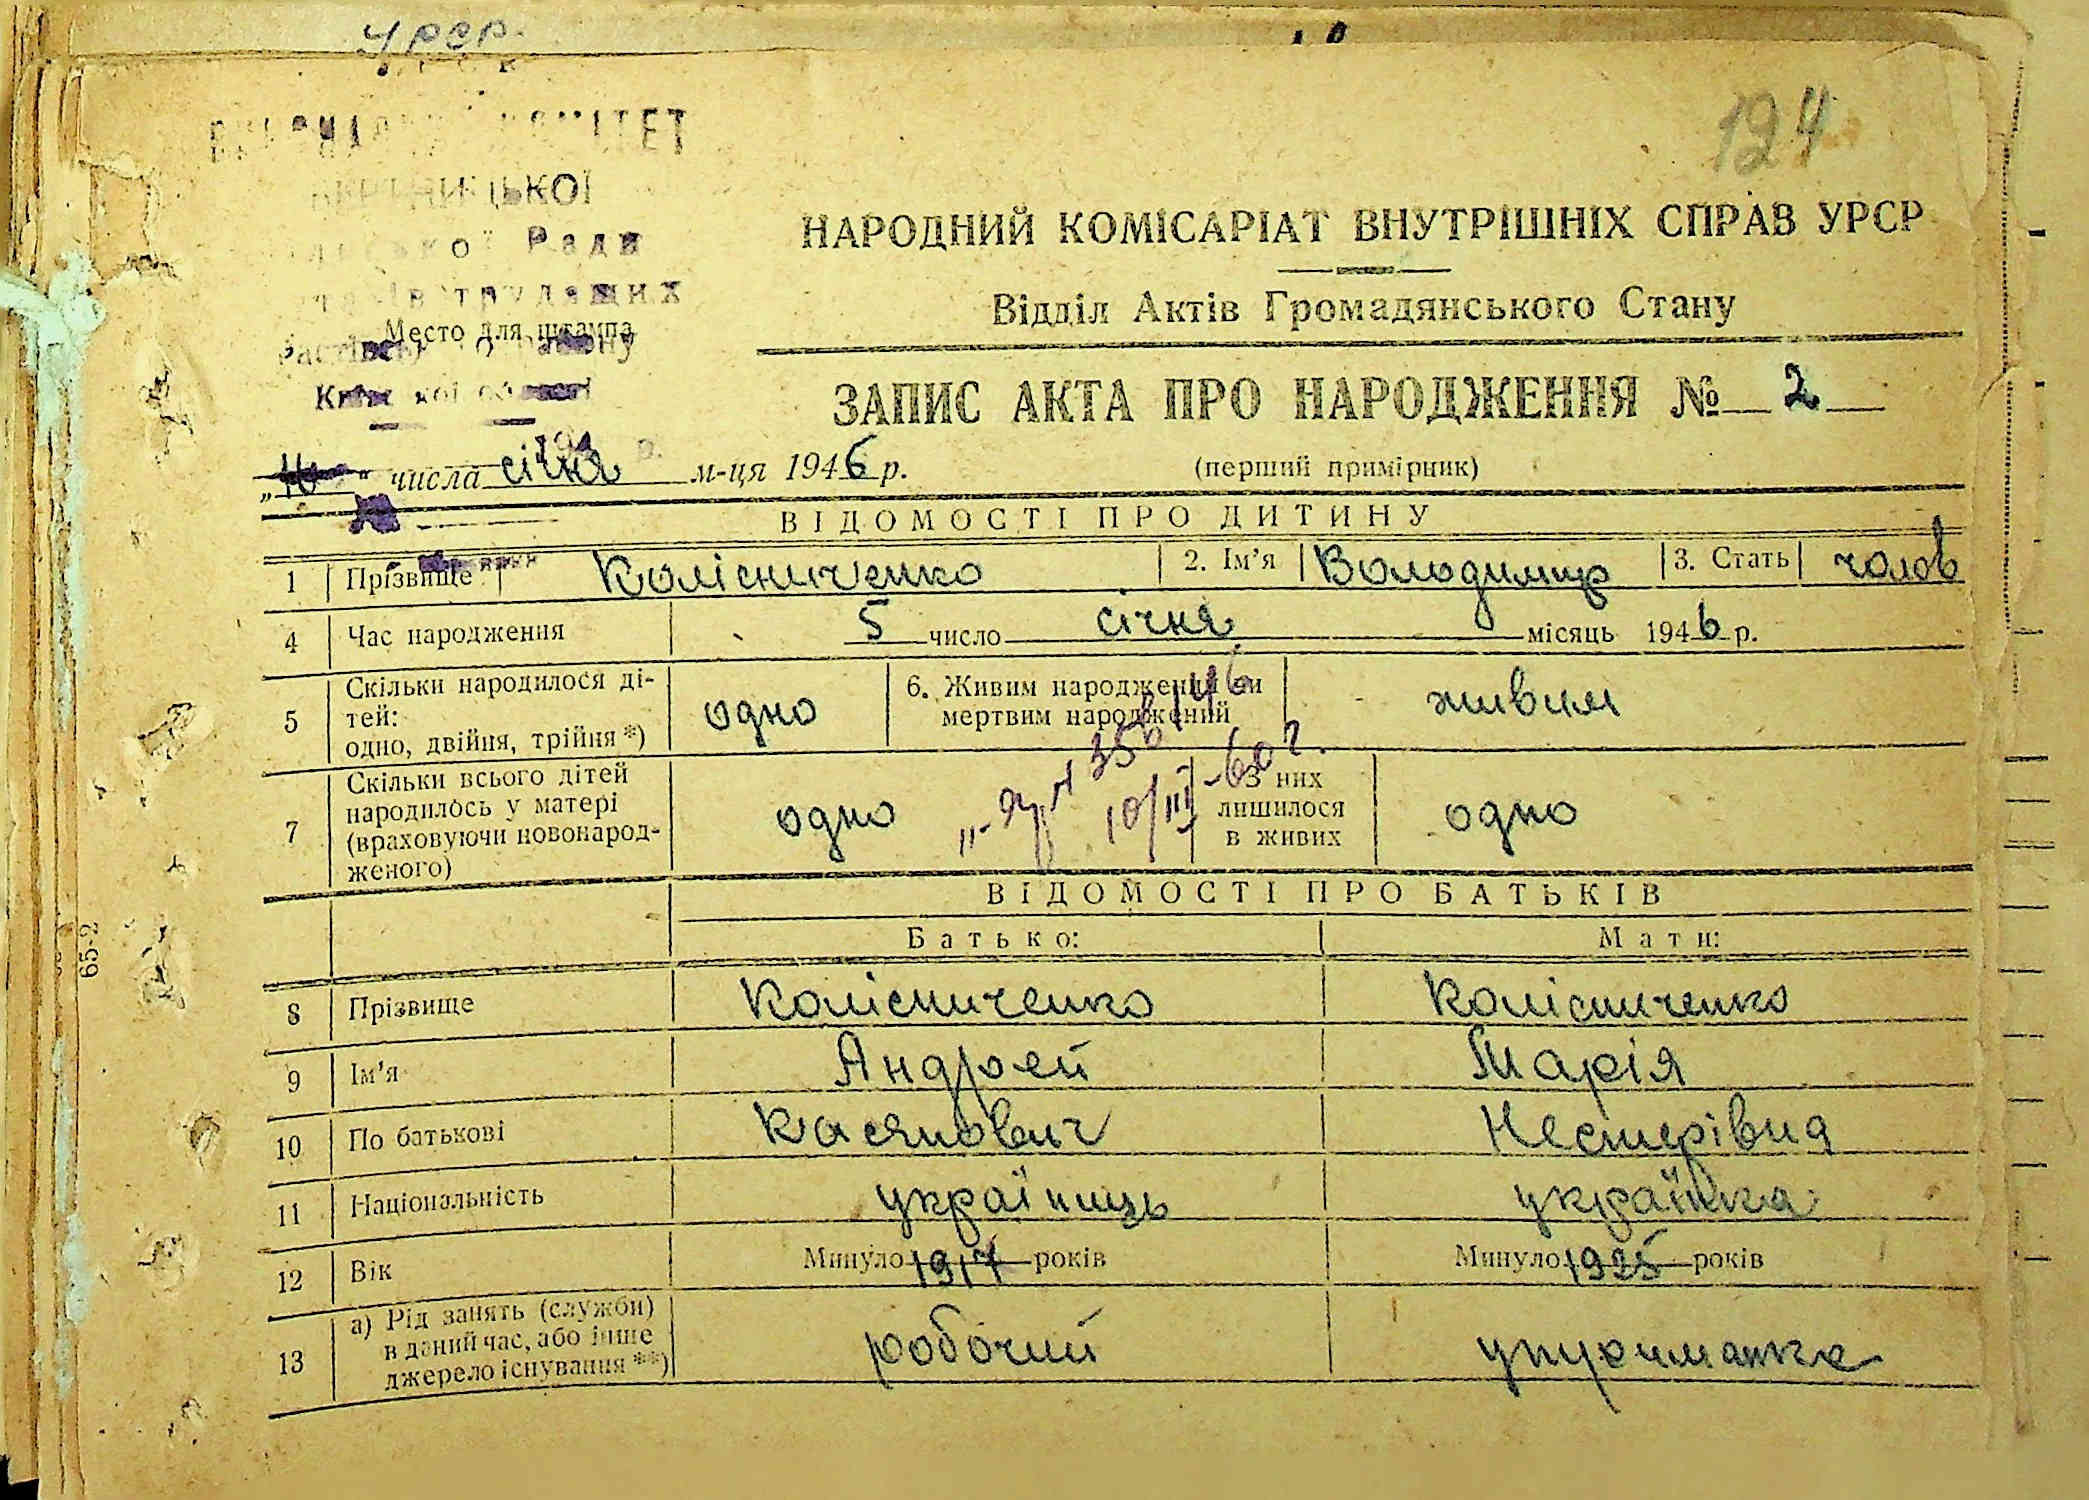 УРСР.
КОМІТЕТ
Ради
трудящих
Место для штампа
району
124
НАРОДНИЙ КОМІСАРІАТ ВНУТРІШНІХ СПРАВ УРСР
Відділ Актів Громадянського Стану
ЗАПИС АКТА ПРО НАРОДЖЕННЯ № 2
„ " числа січня м-ця 1946 р.
(перший примірник)
ВІДОМОСТІ ПРО ДИТИНУ
1 Прізвище Колісниченко 2. Ім'я Володимир 3. Стать чолов
4 Час народження 5 число січня місяць 1946 р.
5 Скільки народилося ді-
тей:
одно, двійня, трійня *) одно
6. Живим народжений чи
мертвим народжений живим
7 Скільки всього дітей
народилось у матері
(враховуючи новонарод-
женого) одно
З них
лишилося
в живих одно
10/III-60 г.
ВІДОМОСТІ ПРО БАТЬКІВ
Батько: Мати:
8 Прізвище Колісниченко Колісниченко
9 Ім'я Андрей Марія
10 По батькові Касянович Нестерівна
11 Національність україниць українка
12 Вік Минуло 1917 років Минуло 1925 років
13 а) Рід занять (служби)
в даний час, або інше
джерело існування **) робочий
65-2